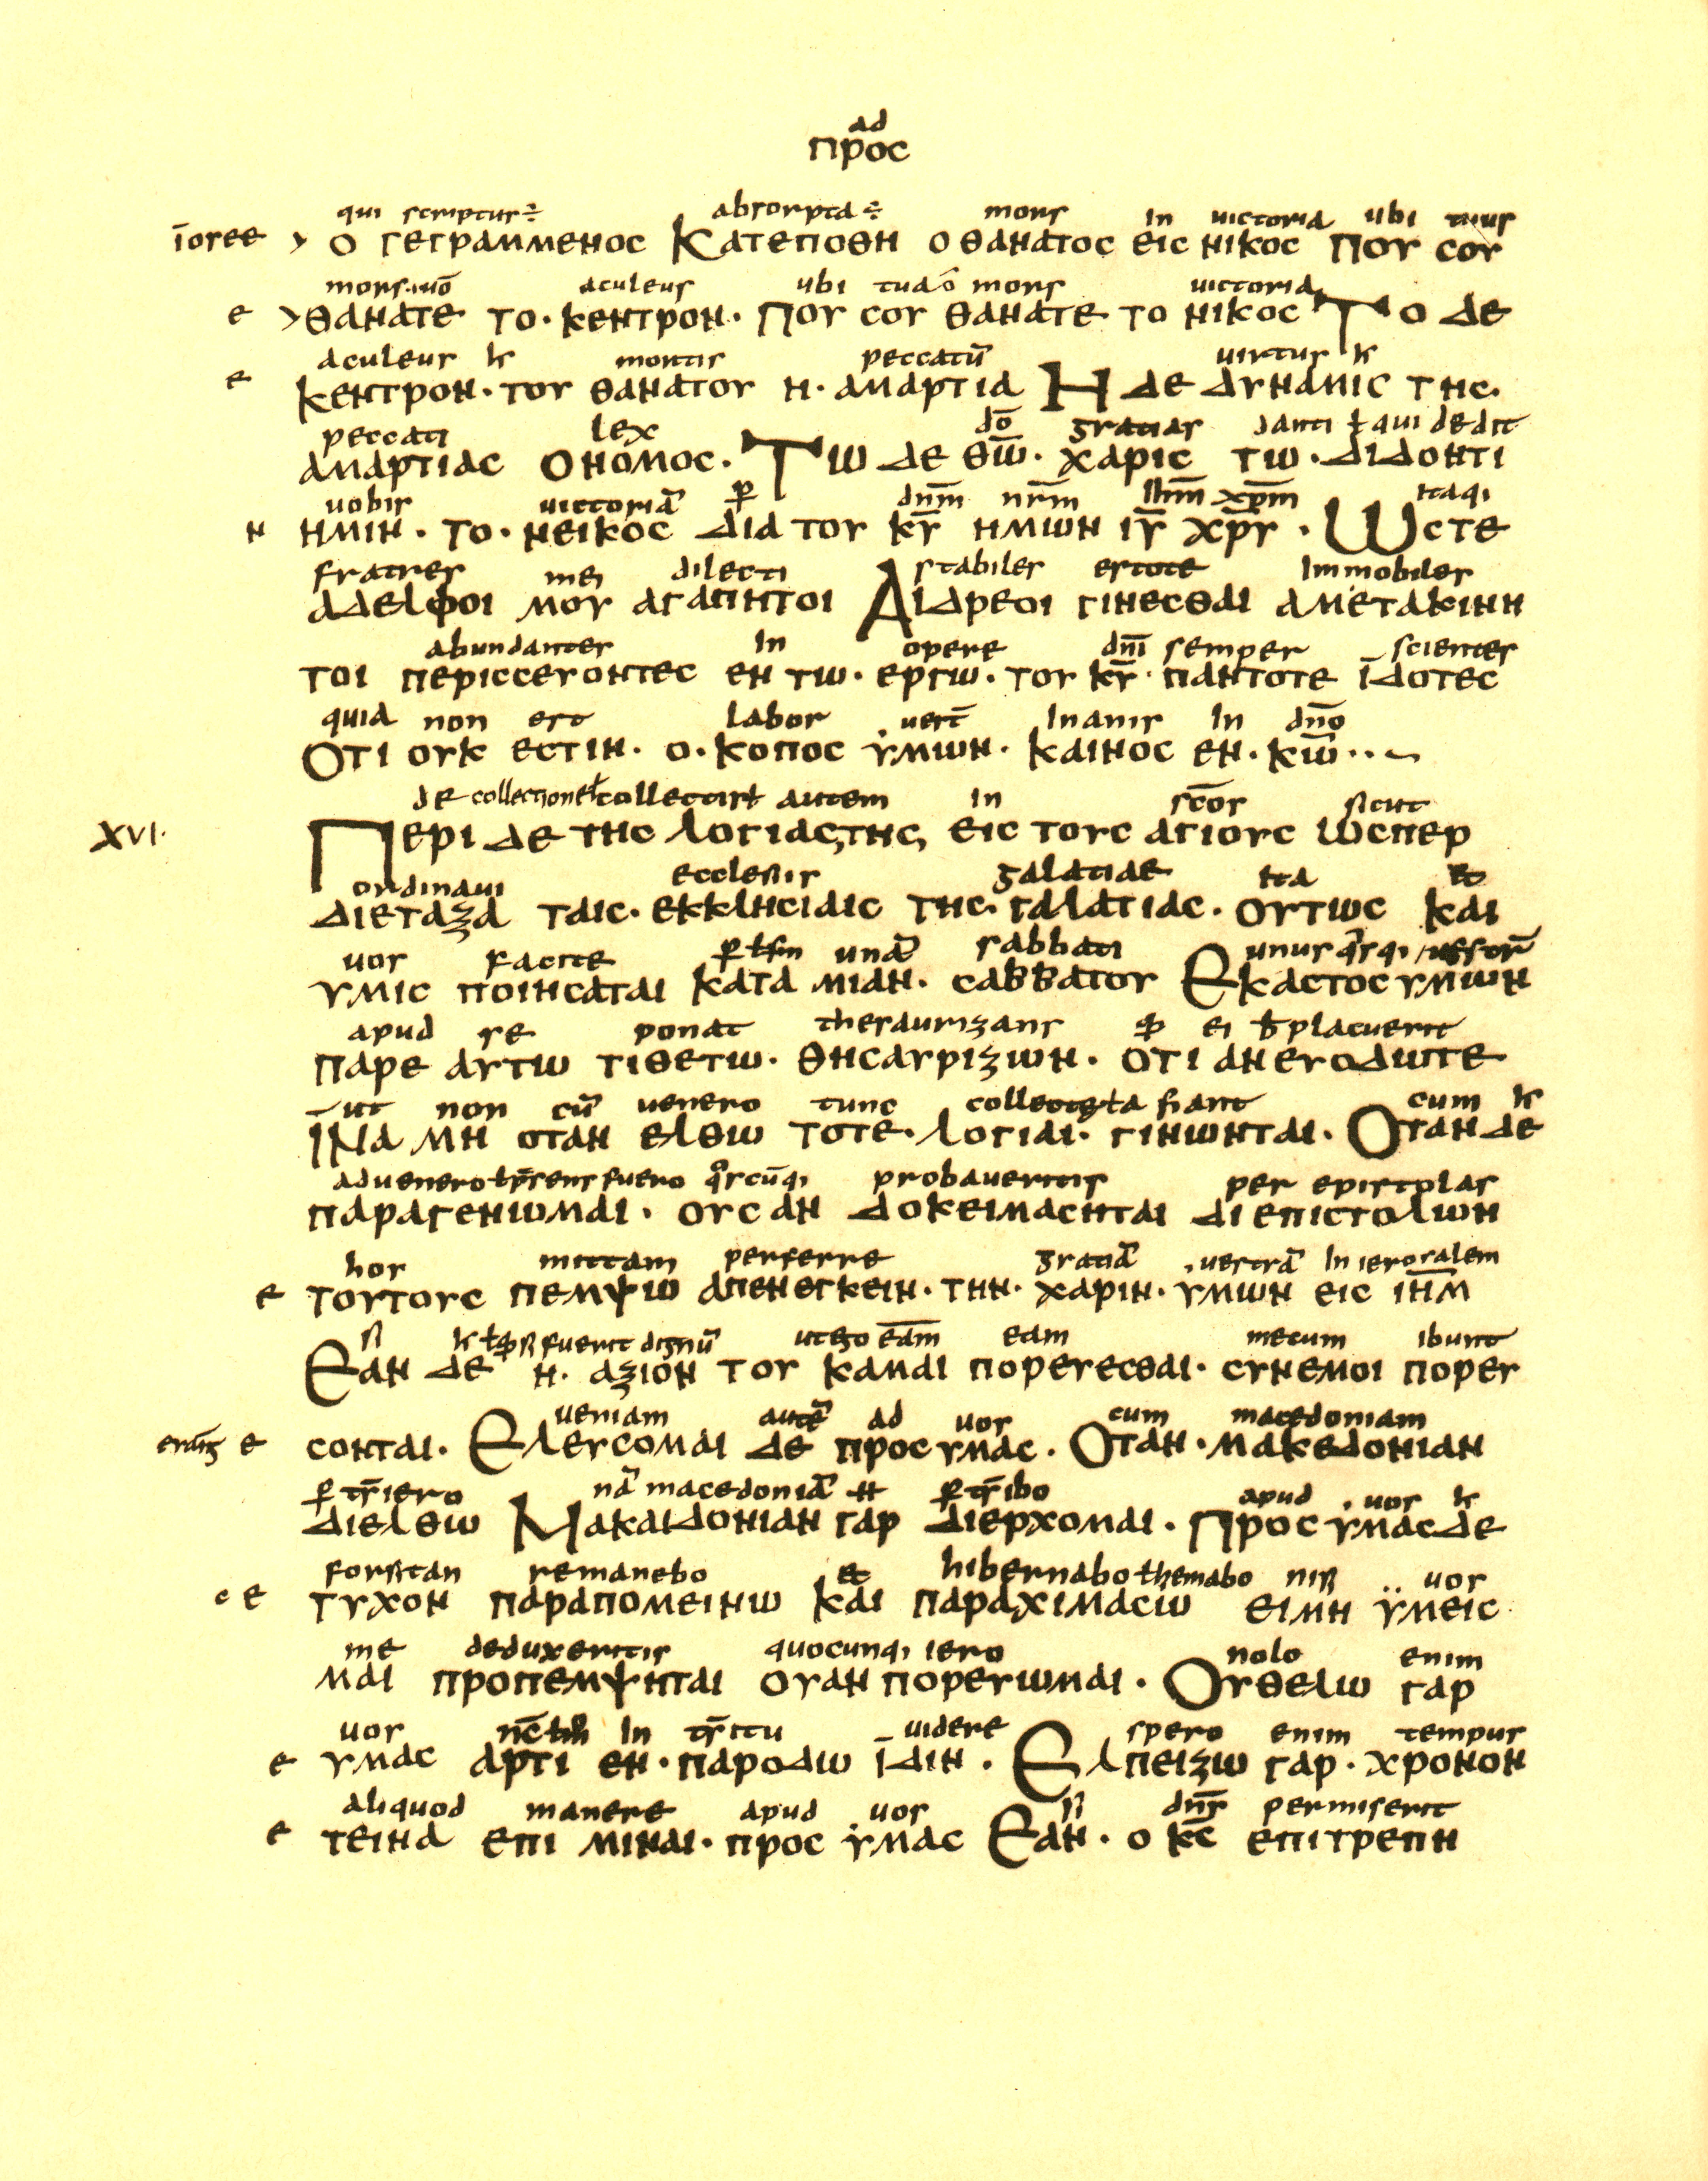 ad
προс
qui scriptur÷ absorpta÷ mors in uictoria ubi tuus
ïosee > ο γεγραμμενος Κατεποθη ο θανατος εις νικος Που σου
mors aculeus ubi tua ō mors uictoria
e > θανατε το· κεντρον· Που σου θανατε το νικος Το δε
aculeus mortis peccatū uirtus
e κεντρον· του θανατου η· αμαρτια Η δε δυναμις της·
peccati lex dō gratias danti ł qui dedit
αμαρτιας ο νομος· Τω δε θω̅· χαρις τω· διδοντι
uobis uictoriā dnm̄ nrm̄ ihm̄ xpm̄ itaq;
н ημιν· το· νεικος δια του κυ̅ ημων ιυ̅ χρυ̅· Ωστε
fratres mei dilecti stabiles estote immobiles
αδελφοι μου αγαπητοι Αιδρεοι γινεσθαι αμετακινη
abundantes in opere dnī semper scientes
τοι περισσευοντες εν τω· εργω· του κυ̅· παντοτε ϊδοτες
quia non est labor uestr̄ inanis in dnō
Οτι ουκ εστιν· ο· κοπος υμων· καινος εν· κω̅··
de collectione ł collectis ł autem in scōs sicut
XVI· Περι δε της λογιας,της, εις τους αγιους ωσπερ
ordinaui ecclesiis galatiae ita et
διεταξα ταις· εκκλησιαις της· γαλατιας· ουτως και
uos facite unā sabbati unus
υμις ποιησαται κατα μιαν· σαββατου Εκαστος υμων
apud se ponat thesaurizans ei placuerit
παρε αυτω τιθετω· θησαυριζων· οτι αν ευοδωτε
ut non cū uenero tunc fiant cum
ΙΝα μη οταν ελθω τοτε· λογιαι· γινωνται· Οταν δε
aduenero ł p̄sens fuero probaueritis per epistolas
παραγενωμαι· ους αν δοκειμασηται δι επιστολων
hos mittam perferre gratiā uestrā in ierosalem
e τουτους πεμψω απενεγκειν· την· χαριν· υμων εις ιη̅μ
si fuerit dignū ut ego eām eam mecum ibunt
Εαν δε η· αξιον του καμαι πορευεσθαι· συνεμοι πορευ
ueniam autē ad uos cum macedoniam
e σονται· Ελευσομαι δε προς υμας· Οταν· μακεδονιαν
nā macedoniā apud uos
διελθω Μακαιδονιαν γαρ διερχομαι· Προς υμας δε
forsitan remanebo et hibernabo ł hemabo uos
c e τυχον παραπομεινω και παραχιμασω ειμη υμεις
me deduxeritis quocunq; iero nolo enim
μαι προπεμψηται ουαν πορευωμαι· Ου θελω γαρ
uos in uidere spero enim tempus
e υμας αρτι εν· παροδω ϊδιν· Ελπειζω γαρ· χρονον
aliquod manere apud uos si dns̄ permiserit
e τεινα επι μιναι· προς υμας Εαν· ο κς̅ επιτρεπη